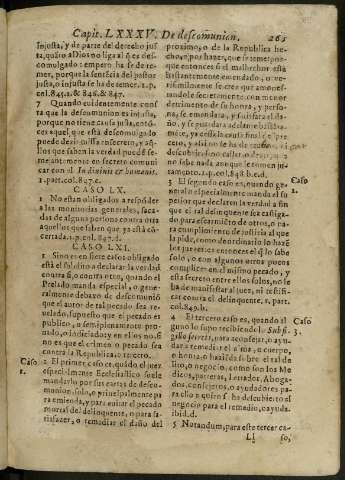 Capit. LXXXV. De descomunion. 265
injusta, y de parte del derecho jus
ta, quãto a Dios no liga al q̃ es des-
comulgado: empero ha se de te-
mer, porque la sentẽcia del pastor
justa, o injusta se ha de temer. 1. p.
col. 845. 1. & 846. & 847.
7 Quando euidentemente cons
ta que la descomunion es injusta,
porque no tiene causa justa, enton-
ces aquel, que està descomulgado
puede dezir missa en secreto, y aũ-
llos que saben la verdad puedẽ se-
mente en secreto comuni
car con el. In diuinis & humanis.
1. part. col. 847. c.
CASO LX.
1 No estan obligados a respõder
a las monitorias generales, faca-
das de algunas personas contra otra
aquellos que saben que ya està cõ-
certada. 1. p. col. 847. d.
CASO LXI.
1 Sino es en siete casos obligado
està el subdito a declarar la verdad
contra si, o contra otro, quando el
Prelado manda especial, o general
mente debaxo de descomunion
que el autor de tal pecado sea re-
uelado, supuesto que el pecado es
publico, o semiplenamente pro-
uado, o indiciado: y en ellos no, si
no es que el crimen o pecado sea
contra la Republica, o tercero.
Caso 1.
2 El primer caso es, quãdo el juez
especialmente Ecclesiastico suele
mandar lo por sus cartas de desco-
munion, solo, o principalmente pa
ra emienda, y para euitar el pecado
mortal del delinquente, o para sa-
tisfazer, o remediar el daño del
proximo, o de la Republica he-
cho, o por hazer, que se teme: por-
que entonces si el malhechor està
bastantemente emendado, o ve-
risimilmente se cree, que siendo
secretamente corregido con menor
detrimento de su honra, y perso-
na, se emendara, y satisfara el da-
ño, y se guardara adelante bastãte-
mẽte, ya cessa la causa final del pre-
cepto, y assi no se ha de
descubrir: sino callar o
sabe nadie mas que le tomen
juramento. 1. p. col. 848. b. c. d.
Caso 2.
3 El segundo caso es, quando ge-
neral o especialmente manda el su
perior que declaren la verdad a fin
que el tal delinquente sea castiga-
do, para escarmiẽto de otros, o pa-
ra cumplimiento de justicia al que
la pide, como de ordinario lo hazẽ
los juezes: entonces el q̃ lo sabe
solo, o con algunos otros pocos
complices en el mismo pecado, y
esta secreto entre ellos solos, no se
ha de manifestar al juez, ni testifi-
car contra el delinquente. 1. part.
col. 849. b.
Caso 3.
4 El tercero caso es, quando al
guno lo supo recibiendolo Sub si-
gillo secreti, para aconsejar, o ayu-
dar a remediar el alma, o cuerpo,
o honra, o haziẽda, o bien del tal
negocio, o como son los Me
dicos, parteras, Letrados, Aboga-
dos, consejeros, o ayudadores pa
ra algo, a quien se ha descubierto el
negocio para el remedio, o ayuda.
ibid. d.
5 Notandum, para este tercer ca-
Ll so,